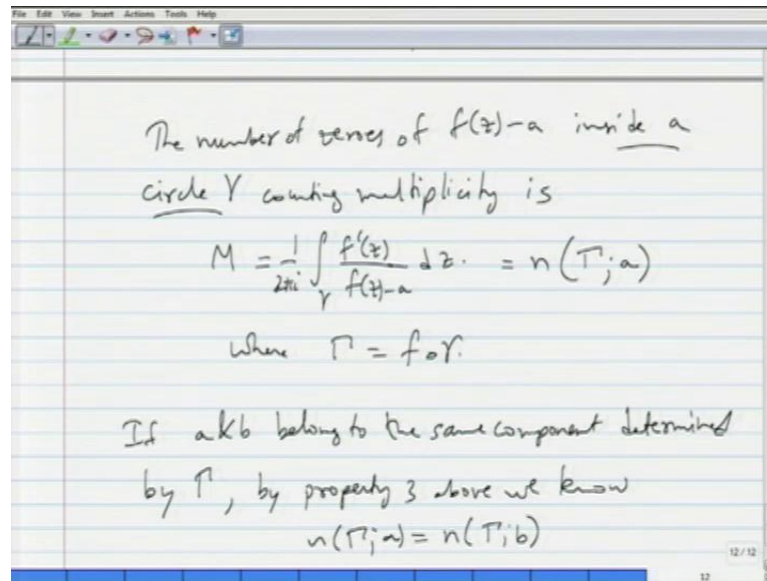 File Edit View Insert Actions Tools Help
The number of zeroes of f(z)-a inside a
circle γ counting multiplicity is
M = 1/2πi ∫γ f'(z)/f(z)-a dz. = n(Γ;a)
where Γ = f∘γ.
If a & b belong to the same component determined
by Γ, by property 3 above we know
n(Γ;a) = n(Γ;b)
12/12
12